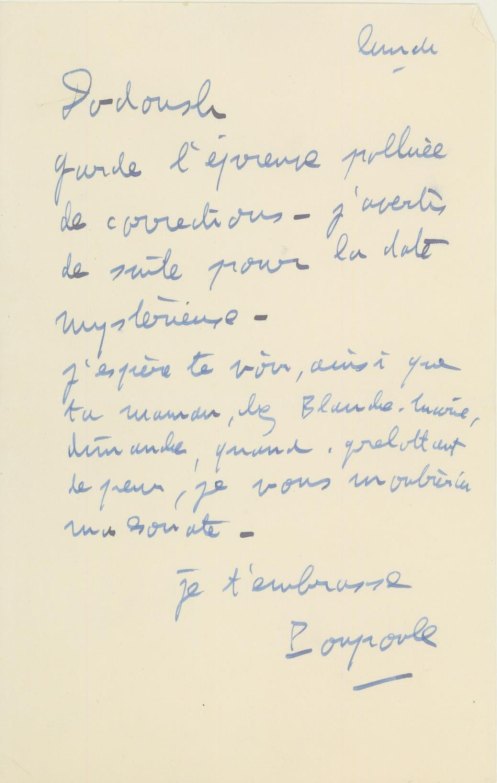 lundi
Dodoush
garde l'épreuve polluée
de corrections - j'avertis
de suite pour la date
mystérieuse -
j'espère te voir, ainsi que
ta maman, chez Blanche-Marie,
dimanche, quand, grelottant
de peur, je vous montrerai
ma sonate -
je t'embrasse
Poupoule